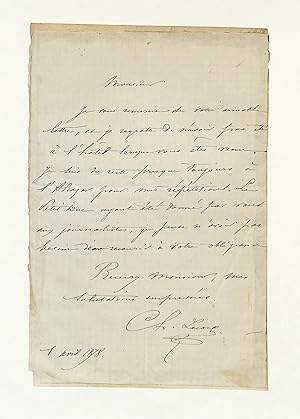 Monsieur
Je vous remercie de votre aimable
lettre, et je regrette de n'avoir pas été
à l'hôtel lorsque vous êtes venu.
Je suis du reste presque toujours à
pour mes répétitions. Le
Petit Duc ayant été donné par vous
aux journalistes, je pense n'avoir pas
besoin de recourir à votre obligeance
Recevez Monsieur, mes
salutations empressées
Ch. Lecocq
1 avril 1878